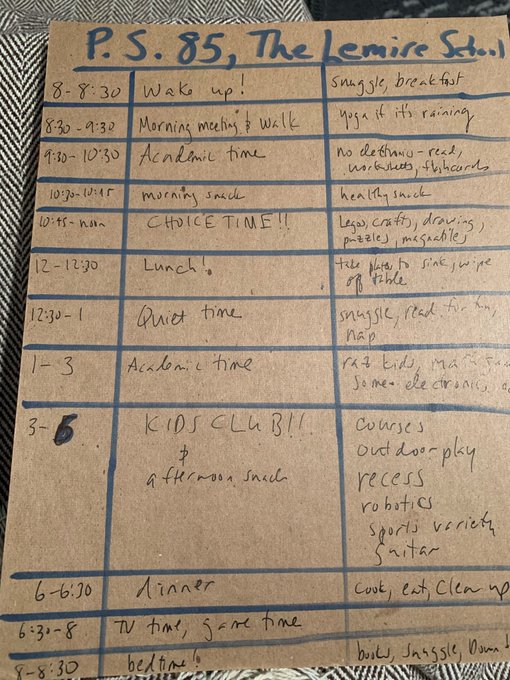 P. S. 85, The Lemire School
8-8:30 Wake up! snuggle, breakfast
8:30-9:30 Morning meeting & Walk yoga if it's raining
9:30-10:30 Academic time no electronic-read,
worksheets, flashcards
10:30-10:45 morning snack healthy snack
10:45-noon CHOICE TIME!! Legos, crafts, drawing,
puzzles, magnatiles
12-12:30 Lunch! take plates to sink, wipe
off table
12:30-1 Quiet time snuggle, read for fun,
nap
1-3 Academic time raz kids,
some electronics,
3-6 KIDS CLUB!! courses
& outdoor play
afternoon snack recess
robotics
sports variety
guitar
6-6:30 dinner cook, eat, clean up
6:30-8 TV time, game time
8-8:30 bedtime! books, snuggle,